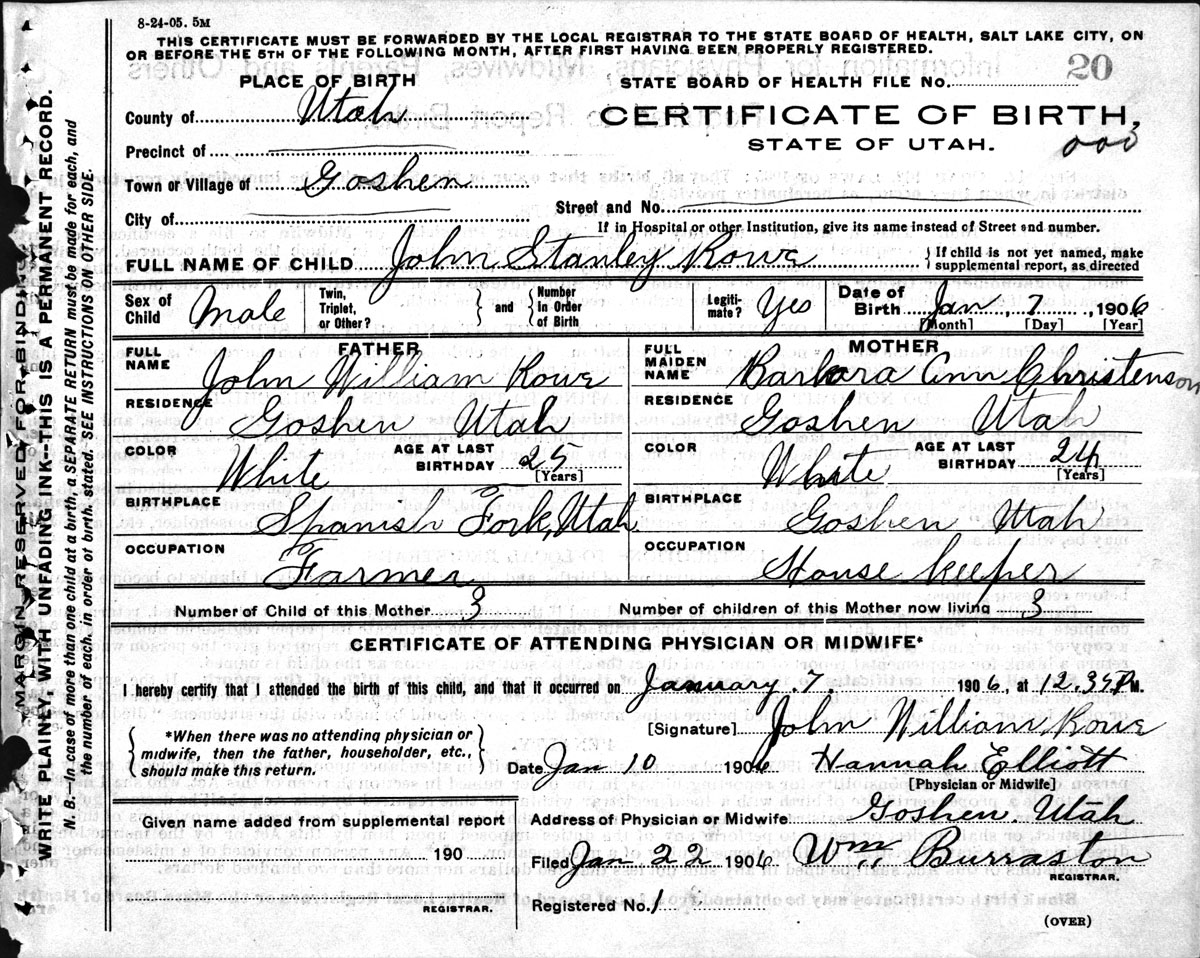 8-24-05. 5M
THIS CERTIFICATE MUST BE FORWARDED BY THE LOCAL REGISTRAR TO THE STATE BOARD OF HEALTH, SALT LAKE CITY, ON
OR BEFORE THE 5TH OF THE FOLLOWING MONTH, AFTER FIRST HAVING BEEN PROPERLY REGISTERED.
PLACE OF BIRTH
STATE BOARD OF HEALTH FILE No. 20
County of Utah
CERTIFICATE OF BIRTH,
STATE OF UTAH.
Precinct of
Town or Village of Goshen
City of
Street and No.
If in Hospital or other Institution, give its name instead of Street and number.
FULL NAME OF CHILD John Stanley Rowe } If child is not yet named, make supplemental report, as directed
Sex of Child Male Twin, Triplet, or Other? } and { Number in Order of Birth Legiti-mate? Yes Date of Birth Jan, 7, 1906
[Month] [Day] [Year]
FATHER MOTHER
FULL NAME John William Rowe FULL MAIDEN NAME Barbara Ann Christenson
RESIDENCE Goshen Utah RESIDENCE Goshen Utah
COLOR White AGE AT LAST BIRTHDAY [Years] COLOR White AGE AT LAST BIRTHDAY 24 [Years]
BIRTHPLACE Spanish Fork, Utah BIRTHPLACE Goshen Utah
OCCUPATION Farmer OCCUPATION House keeper
Number of Child of this Mother 3 Number of children of this Mother now living 3
CERTIFICATE OF ATTENDING PHYSICIAN OR MIDWIFE*
I hereby certify that I attended the birth of this child, and that it occurred on January 7, 1906, at M.
{ *When there was no attending physician or midwife, then the father, householder, etc., should make this return. }
[Signature] John William Rowe
Date Jan 10 1906 Hannah Elliott
[Physician or Midwife]
Given name added from supplemental report
190
REGISTRAR.
Address of Physician or Midwife Goshen Utah
Filed Jan 22 1906 Wm Burraston
REGISTRAR.
Registered No. 1
(OVER)
MARGIN RESERVED FOR BINDING.
WRITE PLAINLY, WITH UNFADING INK--THIS IS A PERMANENT RECORD.
N. B. In case of more than one child at a birth, a SEPARATE RETURN must be made for each, and
the number of each, in order of birth, stated. SEE INSTRUCTIONS ON OTHER SIDE.